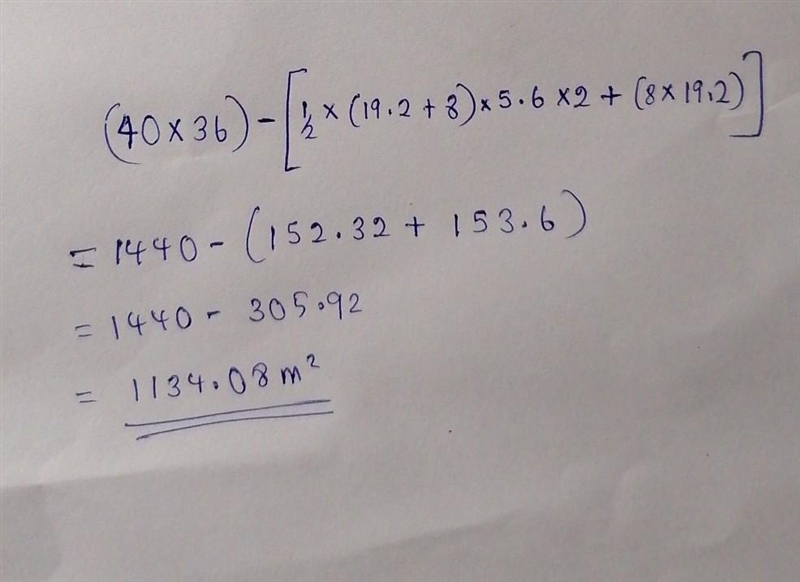 (40 × 36) - [½ × (19.2 + 8) × 5.6 × 2 + (8 × 19.2)]
= 1440 - (152.32 + 153.6)
= 1440 - 305.92
= 1134.08 m²